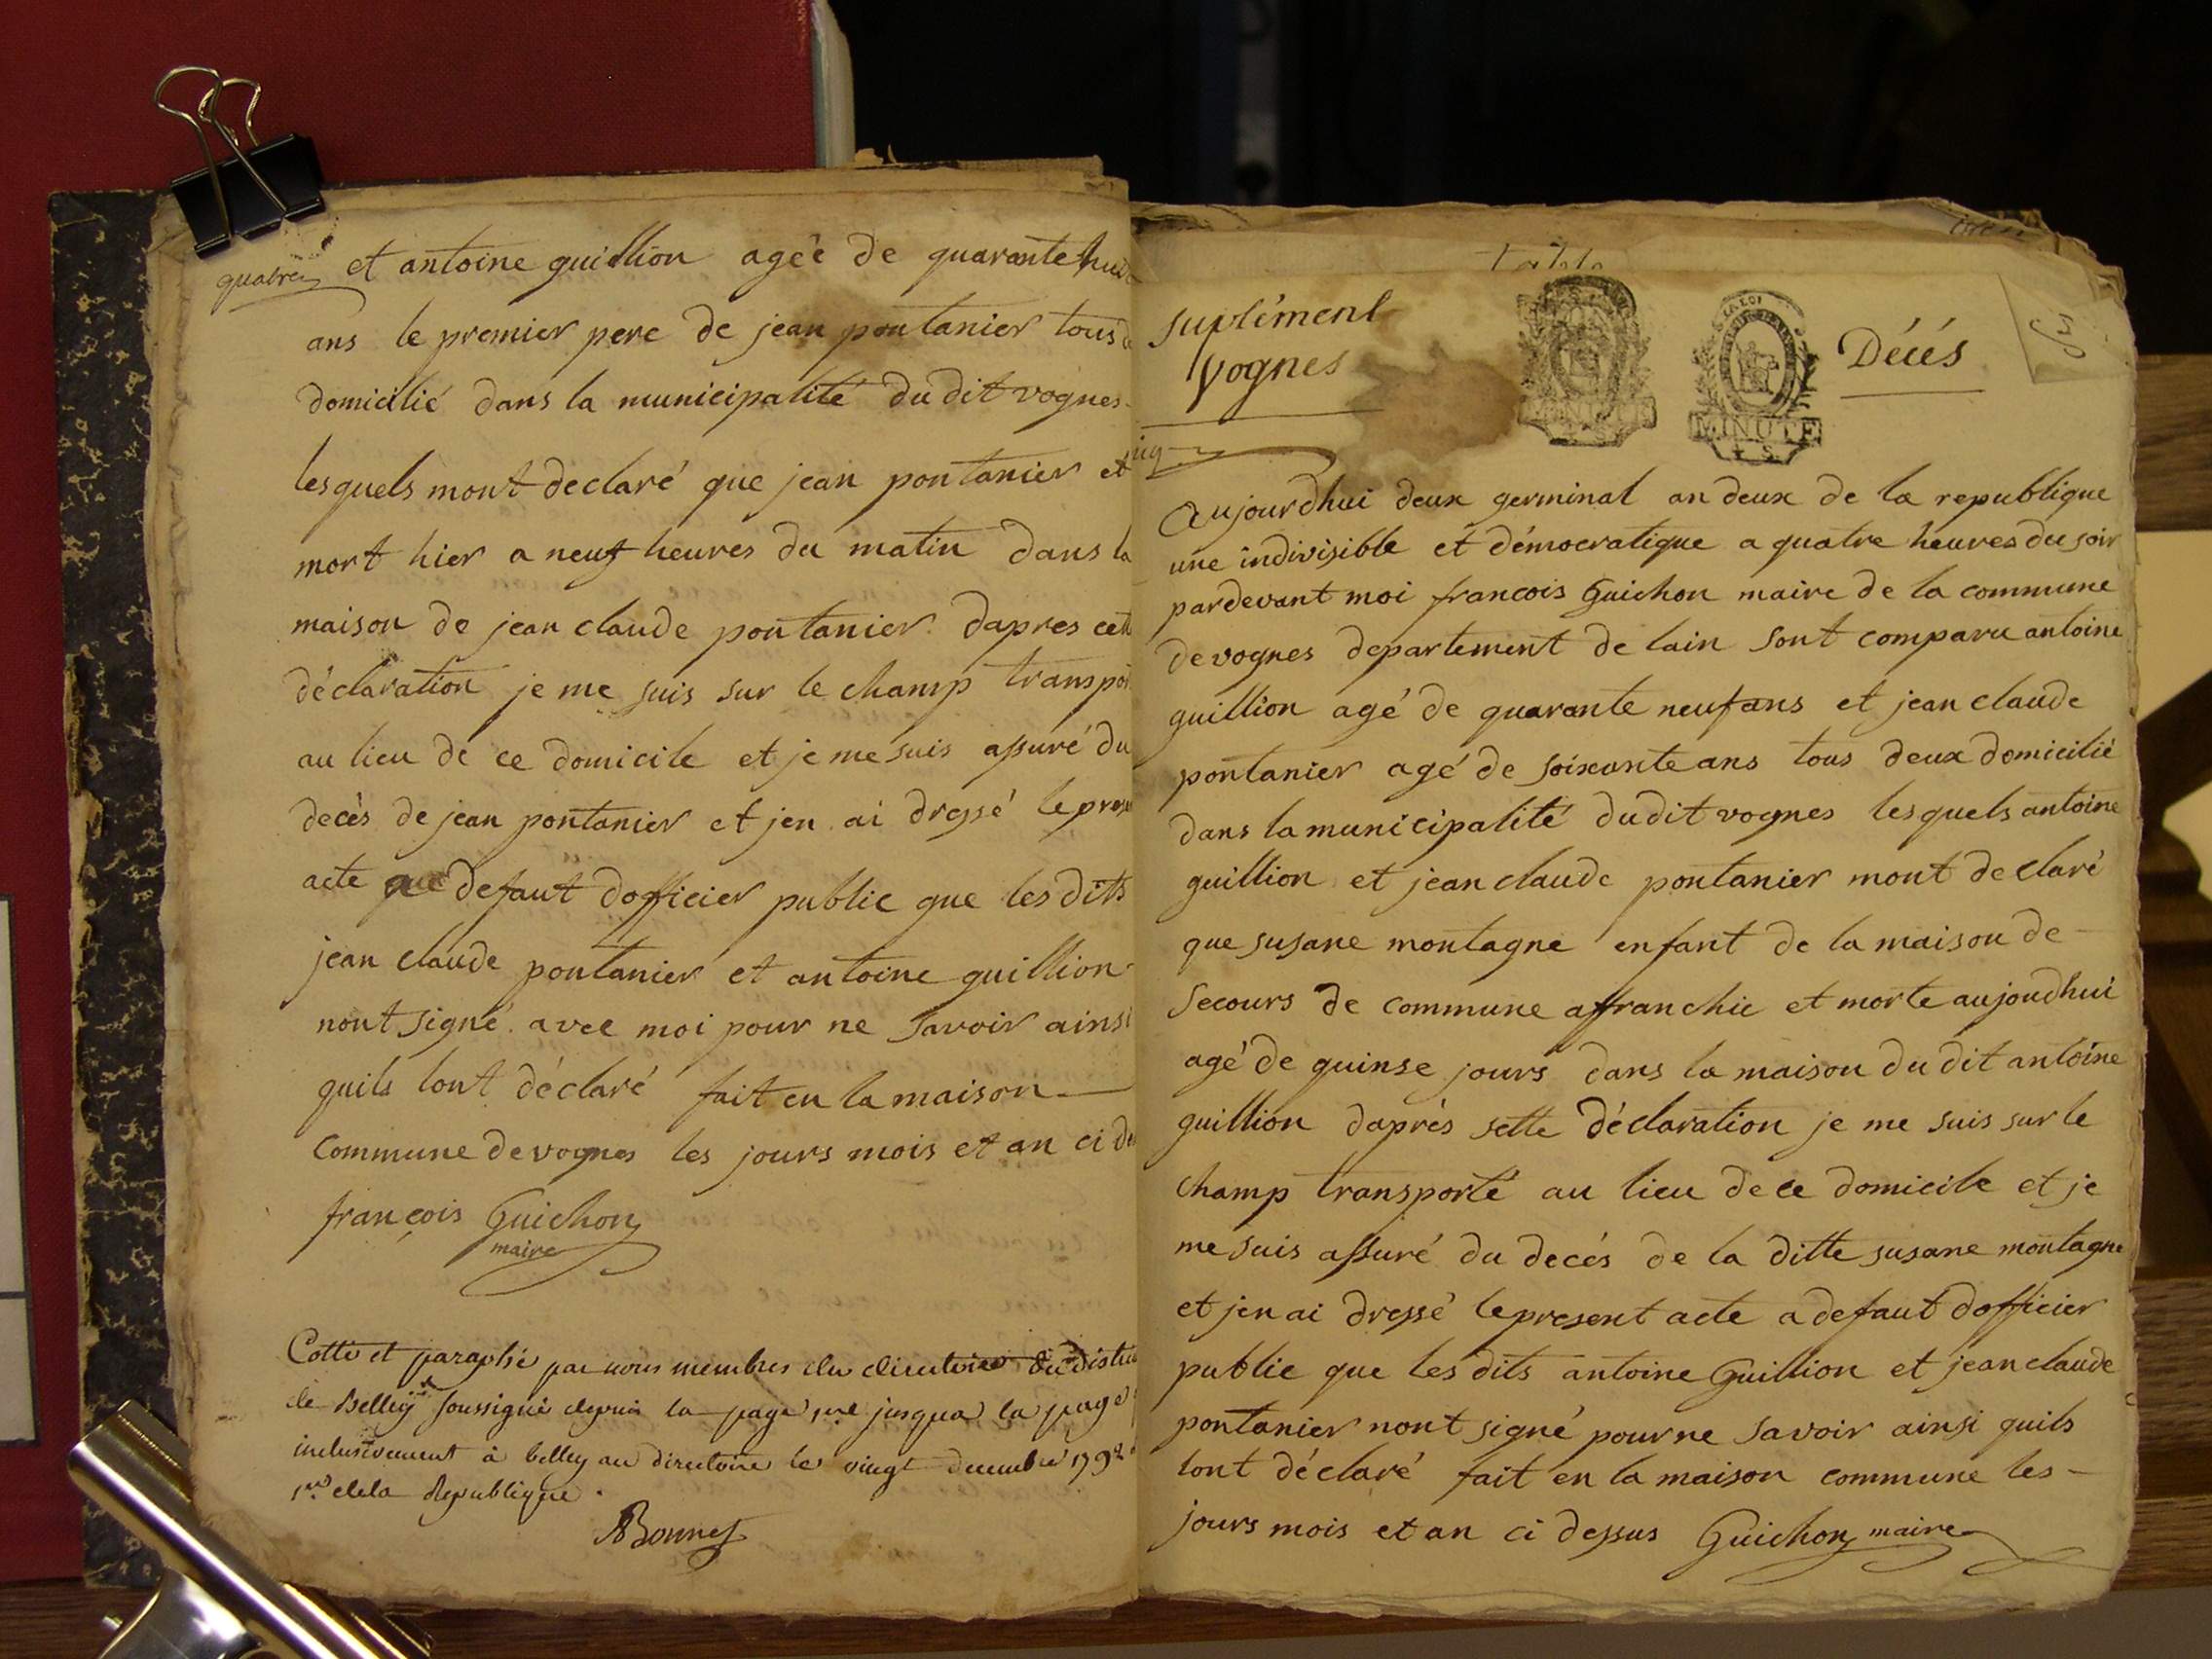 quatre
et antoine guillion ageé de quarante hui
ans le premier pere de jean pontanier tous
domicilié dans la municipalité du dit vognes
lesquels mont declaré que jean pontanier et
mort hier a neuf heures du matin dans la
maison de jean claude pontanier dapres cett
déclaration je me suis sur le champ transpor
au lieu de ce domicile et je me suis assuré du
decès de jean pontanier et jen ai dressé le prese
acte defaut dofficier public que les dits
jean claude pontanier et antoine guillion
nont signé avec moi pour ne savoir ainsi
quils lont déclaré fait en la maison
commune de vognes les jours mois et an ci de
françois Guichon
maire
Cotte et paraphé par nous membres du directoire du distri
de Belley soussigné depuis la page 1re jusqua la page
inclusivement à belley au directoire le vingt decembre 1792
1er dela Republique.
Bonnet
suplément
vognes
Décés
LA LOI
MINUTE
aujourdhui deux germinal an deux de la republique
une indivisible et démocratique a quatre heures du soir
pardevant moi francois Guichon maire de la commune
de vognes departement de lain sont comparu antoine
guillion agé de quarante neuf ans et jean claude
pontanier agé de soixante ans tous deux domicilié
dans la municipalité du dit vognes lesquels antoine
guillion et jean claude pontanier mont declaré
que susane montagne enfant de la maison de
secours de commune affranchie et morte aujoudhui
agé de quinse jours dans la maison du dit antoine
guillion daprès sette déclaration je me suis sur le
champ transporté au lieu de ce domicile et je
me suis assuré du decés de la ditte susane montagne
et jen ai dressé le present acte a defaut dofficier
public que les dits antoine Guillion et jean claude
pontanier nont signé pour ne savoir ainsi quils
lont déclaré fait en la maison commune les
jours mois et an ci dessus Guichon maire